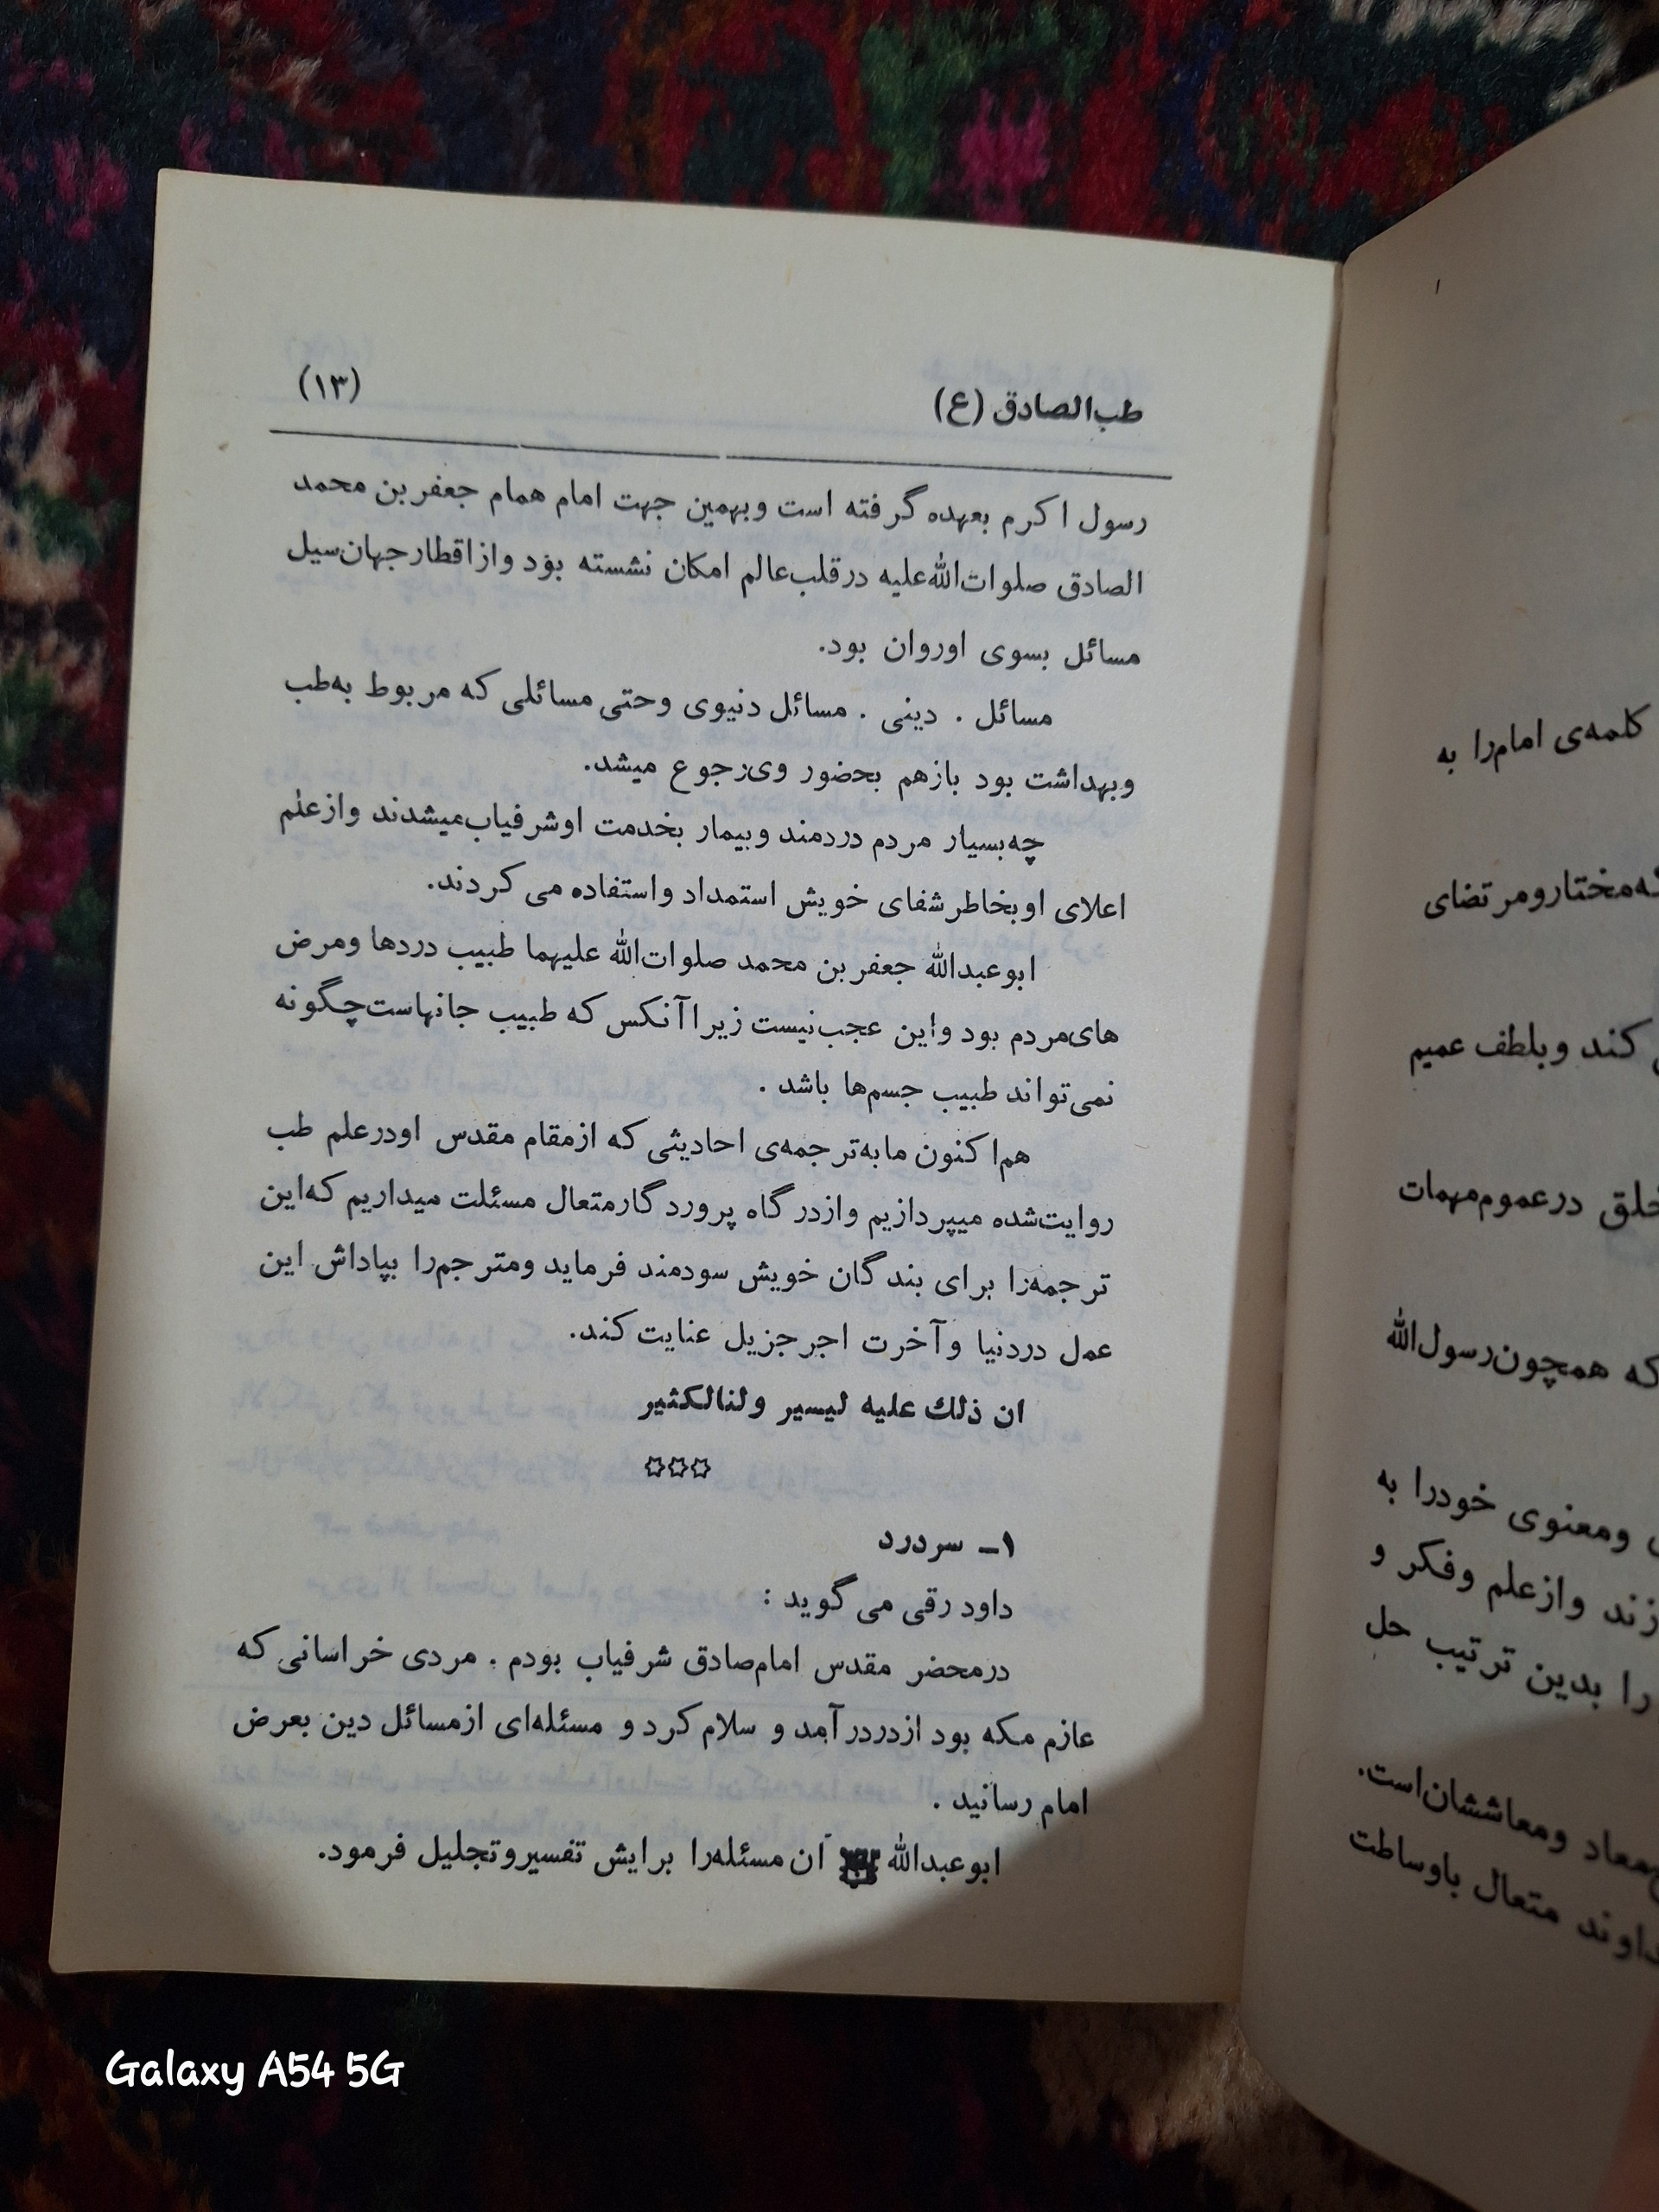 طب‌الصادق (ع)
(۱۳)
رسول اکرم بعهده گرفته است وبهمین جهت امام همام جعفر بن محمد
الصادق صلوات‌الله‌علیه درقلب‌عالم امکان نشسته بود وازاقطارجهان‌سیل
مسائل بسوی اوروان بود.
مسائل . دینی . مسائل دنیوی وحتی مسائلی که مربوط به‌طب
وبهداشت بود بازهم بحضور وی‌رجوع میشد.
چه‌بسیار مردم دردمند وبیمار بخدمت اوشرفیاب‌میشدند وازعلم
اعلای اوبخاطرشفای خویش استمداد واستفاده می کردند.
ابوعبدالله جعفربن محمد صلوات‌الله علیهما طبیب دردها ومرض
های‌مردم بود واین عجب‌نیست زیراآنکس که طبیب جانهاست‌چگونه
نمی‌تواند طبیب جسم‌ها باشد .
هم‌اکنون مابه‌ترجمه‌ی احادیثی که ازمقام مقدس اودرعلم طب
روایت‌شده میپردازیم وازدرگاه پروردگارمتعال مسئلت میداریم که‌این
ترجمه‌را برای بندگان خویش سودمند فرماید ومترجم‌را بپاداش این
عمل دردنیا وآخرت اجرجزیل عنایت کند.
ان ذلك علیه لیسیر ولنالکثیر
✡✡✡
۱ـ سردرد
داود رقی می گوید :
درمحضر مقدس امام‌صادق شرفیاب بودم . مردی خراسانی که
عازم مکه بود ازدردرآمد و سلام کرد و مسئله‌ای ازمسائل دین بعرض
امام رسانید .
ابوعبدالله آن مسئله‌را برایش تفسیروتجلیل فرمود.
کلمه‌ی امام‌را به
که‌مختارومرتضای
کند وبلطف عمیم
خلق درعموم‌مهمات
که همچون‌رسول‌الله
ومعنوی خودرا به
وازعلم وفکر و
را بدین ترتیب حل
معاد ومعاششان‌است.
متعال باوساطت
Galaxy A54 5G